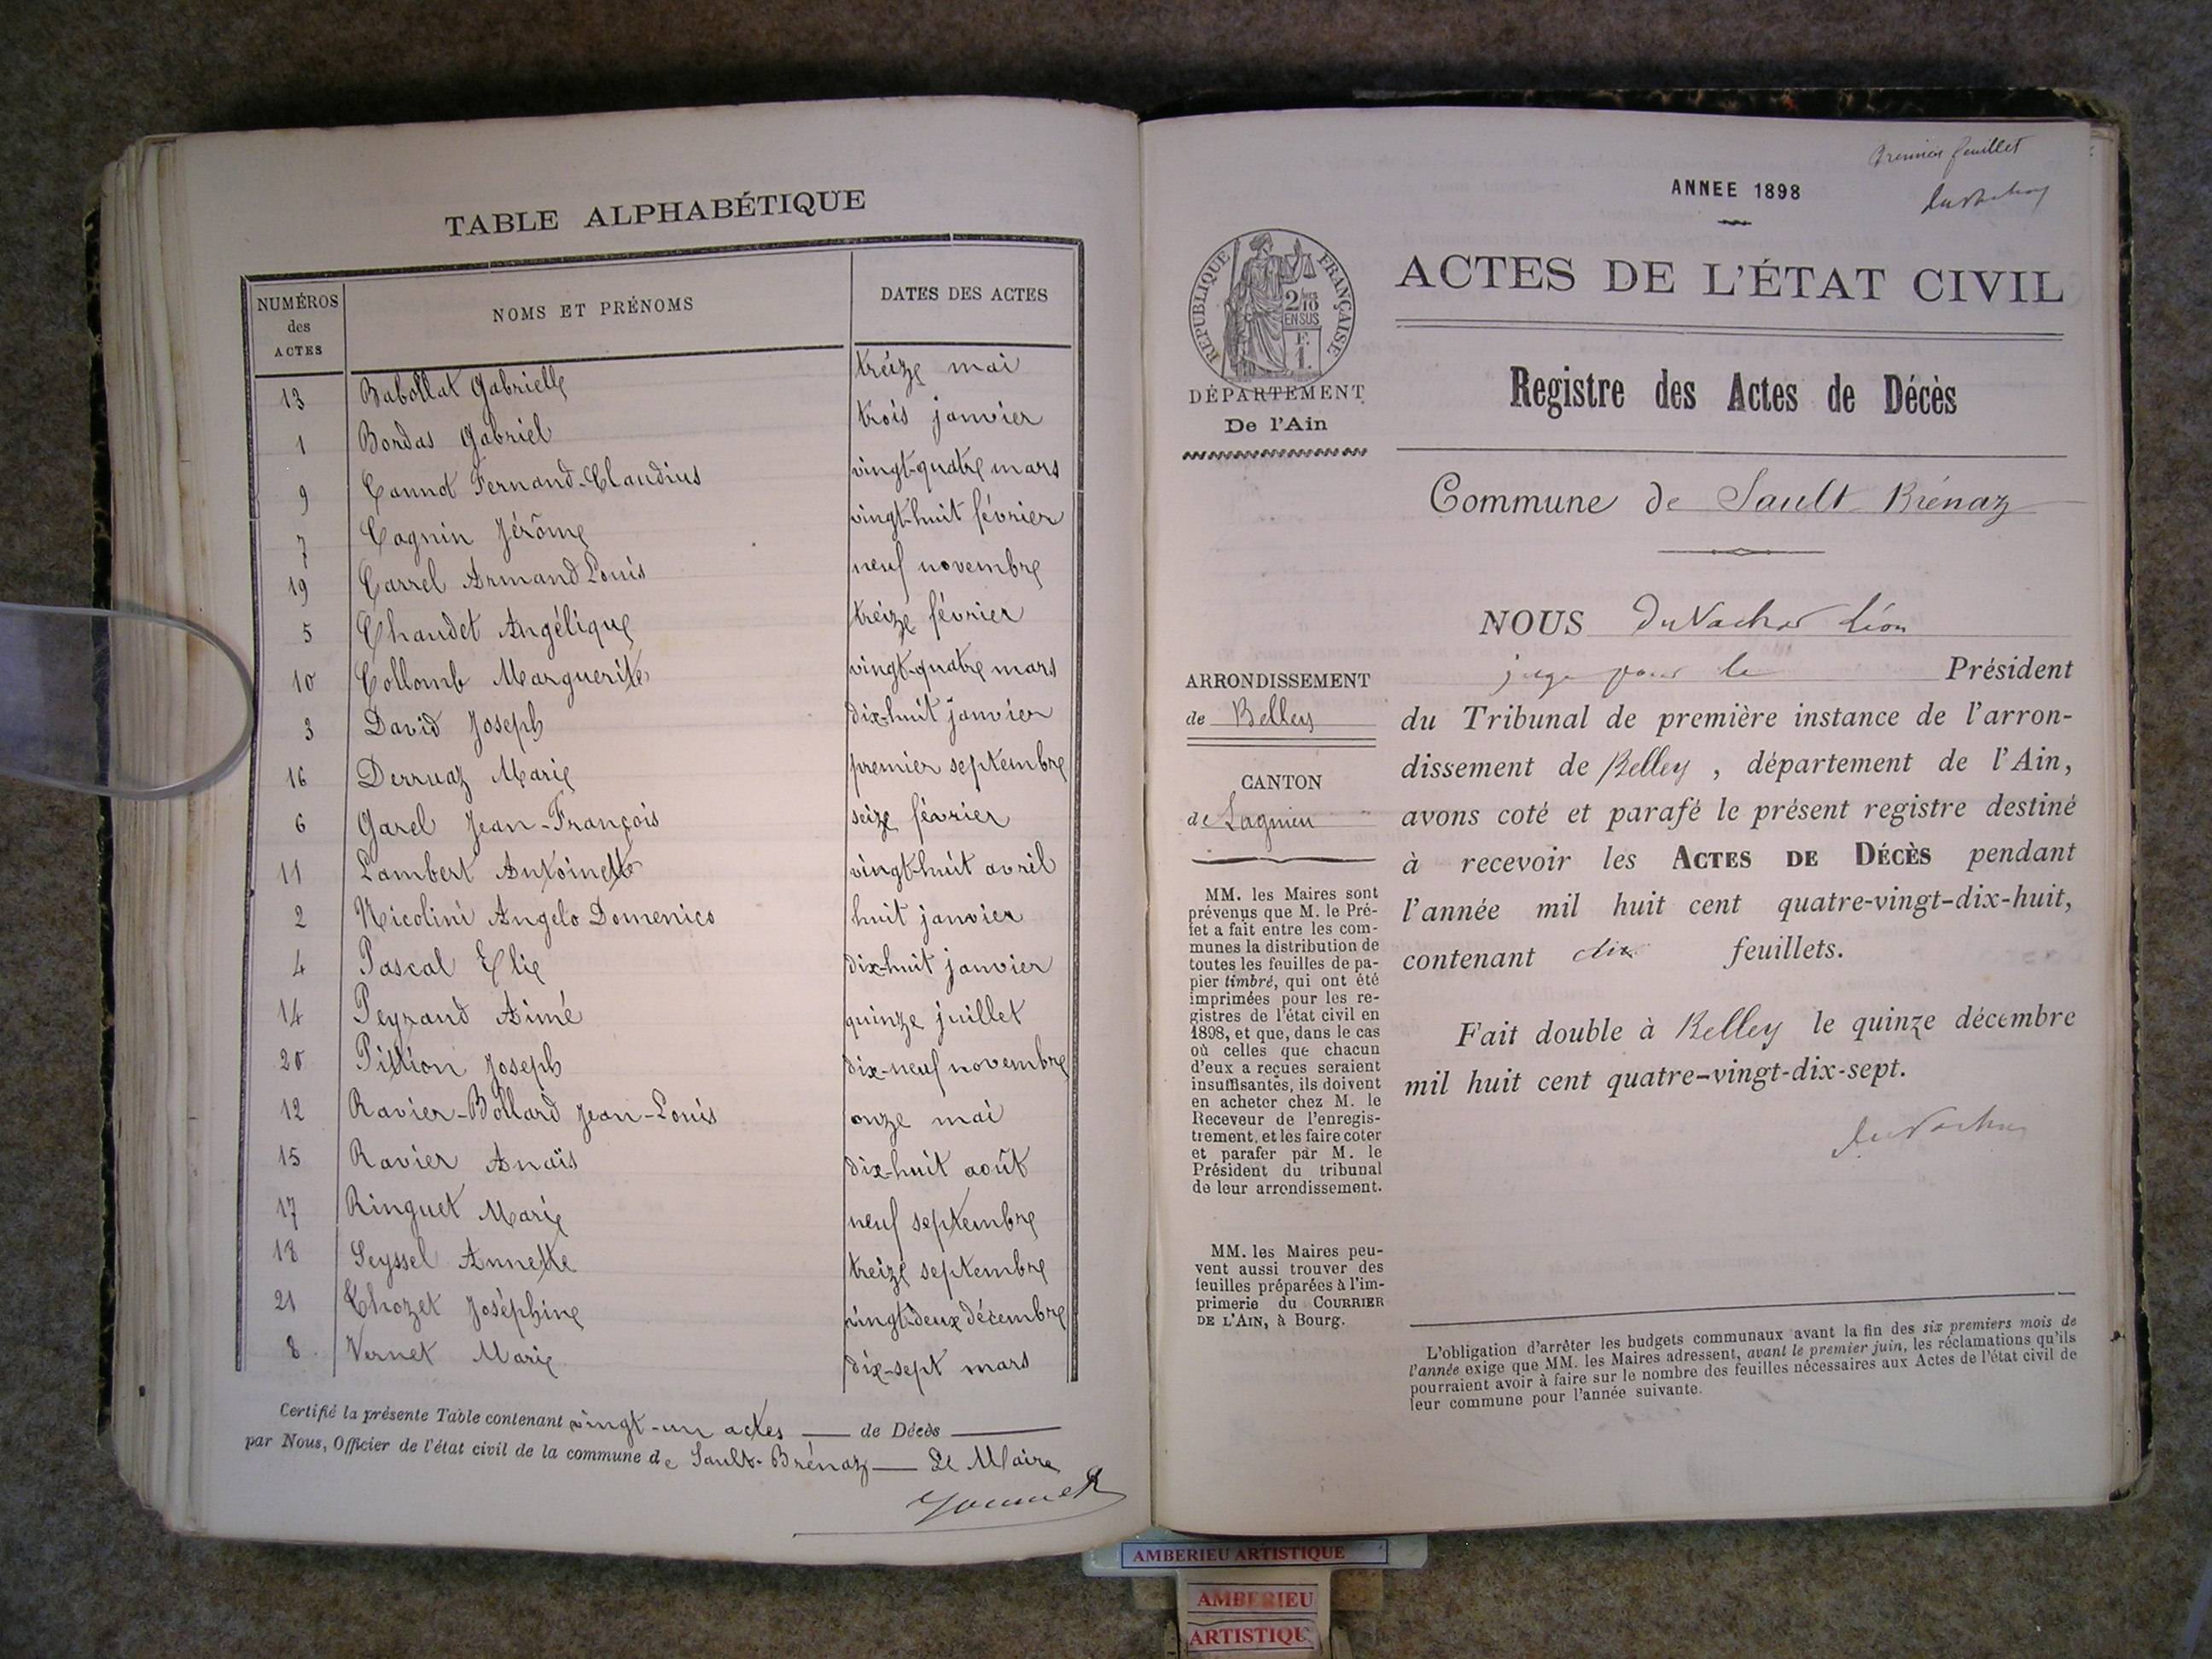 TABLE ALPHABÉTIQUE
NUMÉROS des ACTES
NOMS ET PRÉNOMS
DATES DES ACTES
13 Babollat Gabrielle treize mai
1 Bordas Gabriel trois janvier
9 Cannot Fernand-Claudius vingt-quatre mars
7 Cognin Jérôme vingt-huit février
19 Carrel Armand Louis neuf novembre
5 Chaudet Angélique treize février
10 Collomb Marguerite vingt-quatre mars
3 David Joseph dix-huit janvier
16 Derruaz Marie premier septembre
6 Garel Jean-François seize février
11 Lambert Antoinette vingt-huit avril
2 Nicolini Angelo Domenico huit janvier
4 Pascal Elie dix-huit janvier
14 Peyzaud Aimé quinze juillet
20 Pittion Joseph dix-neuf novembre
12 Ravier-Bollard Jean-Louis onze mai
15 Ravier Anaïs dix-huit août
17 Ringuet Marie neuf septembre
18 Seyssel Annette treize septembre
21 Chozet Joséphine vingt-deux décembre
8 Vernet Marie dix-sept mars
Certifié la présente Table contenant vingt-un actes de Décès
par Nous, Officier de l'état civil de la commune de Sault-Brénaz Le Maire
Premier feuillet
ANNEE 1898
RÉPUBLIQUE FRANÇAISE
2/10
EN SUS
F.
1.
ACTES DE L'ÉTAT CIVIL
DÉPARTEMENT
De l'Ain
Registre des Actes de Décès
Commune de Sault-Brénaz
ARRONDISSEMENT
de Belley
CANTON
de Lagnieu
MM. les Maires sont
prévenus que M. le Pré-
fet a fait entre les com-
munes la distribution de
toutes les feuilles de pa-
pier timbré, qui ont été
imprimées pour les re-
gistres de l'état civil en
1898, et que, dans le cas
où celles que chacun
d'eux a reçues seraient
insuffisantes, ils doivent
en acheter chez M. le
Receveur de l'enregis-
trement, et les faire coter
et parafer par M. le
Président du tribunal
de leur arrondissement.
MM. les Maires peu-
vent aussi trouver des
feuilles préparées à l'im-
primerie du COURRIER
DE L'AIN, à Bourg.
NOUS DuVachat Léon
juge pour le Président
du Tribunal de première instance de l'arron-
dissement de Belley, département de l'Ain,
avons coté et parafé le présent registre destiné
à recevoir les ACTES DE DÉCÈS pendant
l'année mil huit cent quatre-vingt-dix-huit,
contenant dix feuillets.
Fait double à Belley le quinze décembre
mil huit cent quatre-vingt-dix-sept.
DuVachat
L'obligation d'arrêter les budgets communaux avant la fin des six premiers mois de
l'année exige que MM. les Maires adressent, avant le premier juin, les réclamations qu'ils
pourraient avoir à faire sur le nombre des feuilles nécessaires aux Actes de l'état civil de
leur commune pour l'année suivante.
AMBERIEU ARTISTIQUE
AMBERIEU
ARTISTIQU